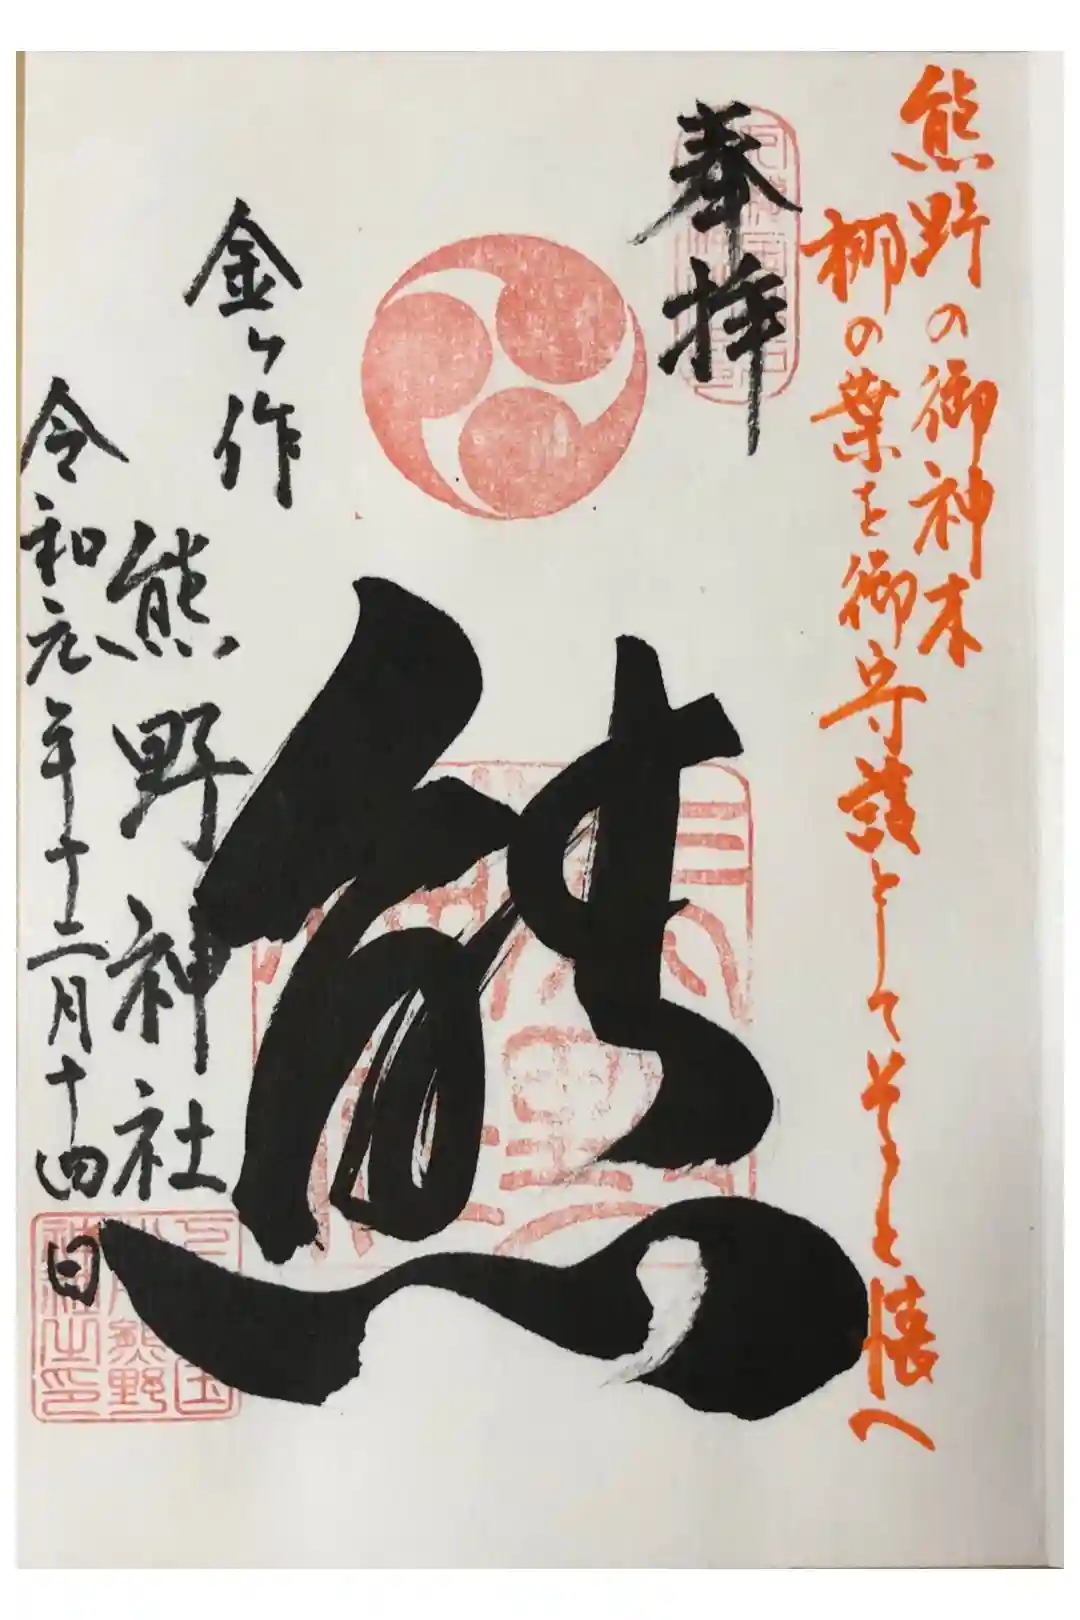 熊野の御神木
梛の葉を御守護としてそっと懐へ
奉拝
熊
金ヶ作
熊野神社
令和元年十二月十四日
熊野
神社之印